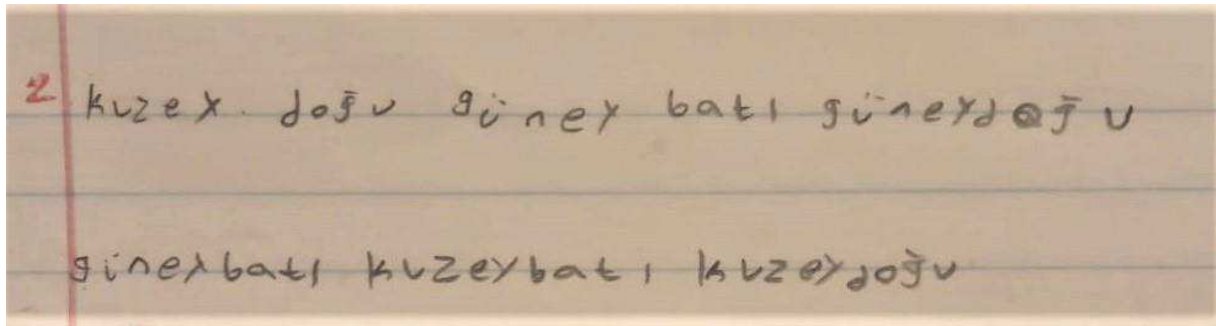 2 kuzey doğu güney batı güneydoğu
güneybatı kuzeybatı kuzeydoğu